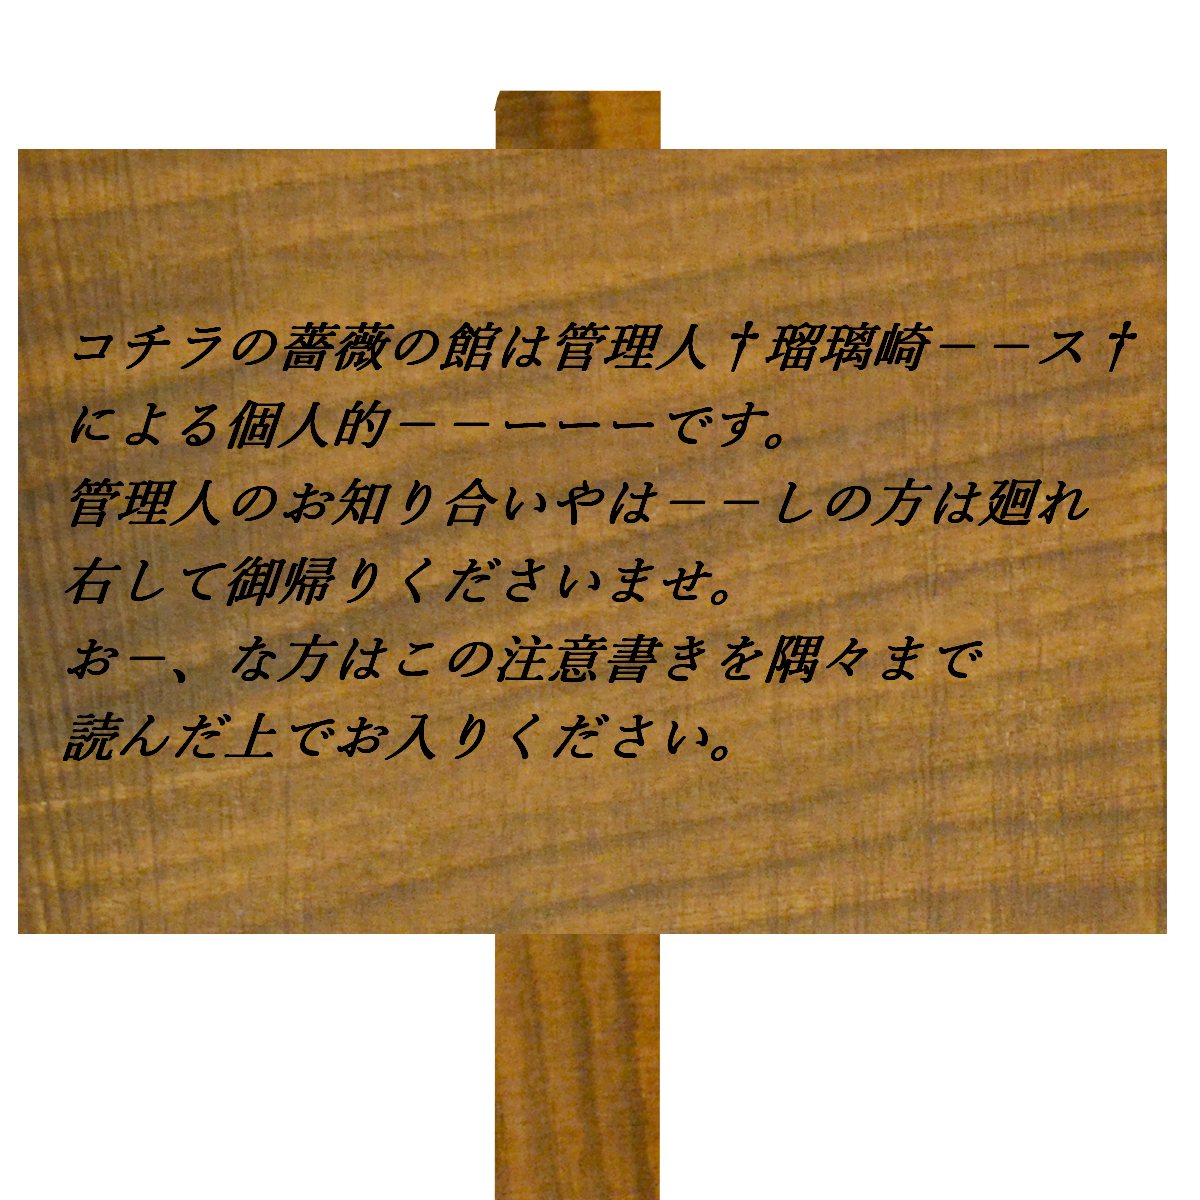 コチラの薔薇の館は管理人†瑠璃崎－－ス†
による個人的－－ーーーです。
管理人のお知り合いやは－－しの方は廻れ
右して御帰りくださいませ。
お－、な方はこの注意書きを隅々まで
読んだ上でお入りください。